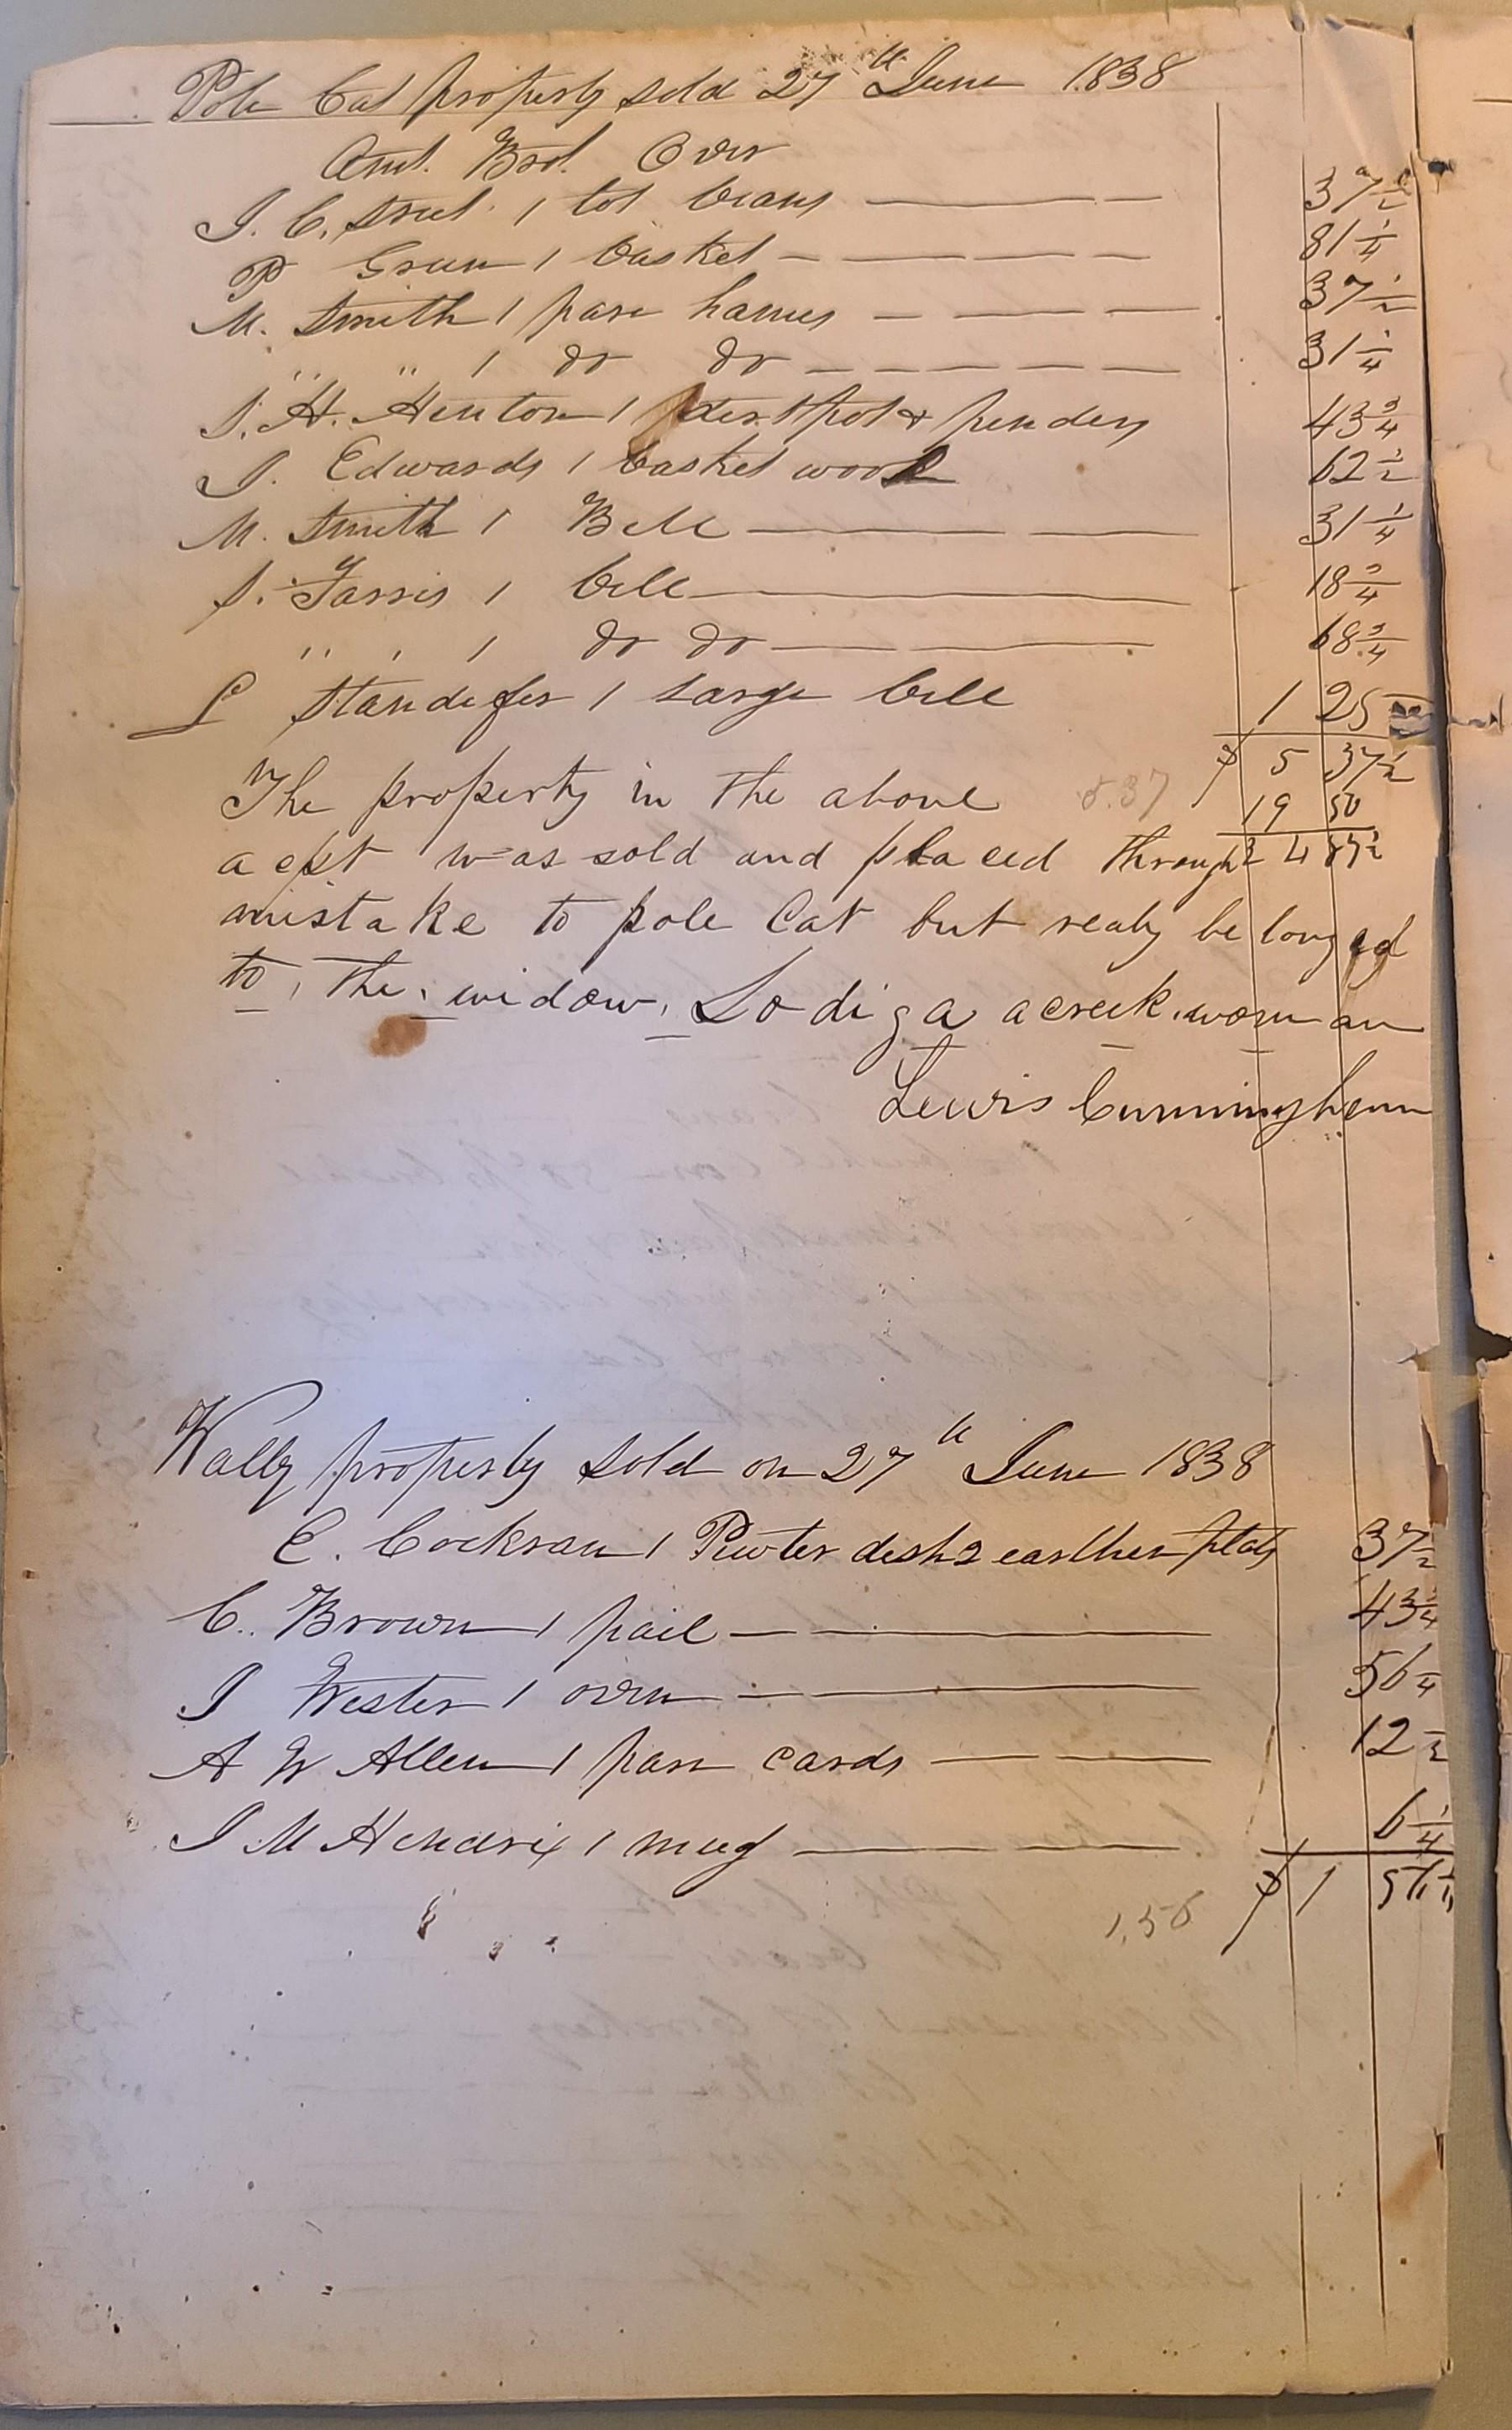 Pole Cat property sold 27th June 1838
Amt. Brot. Over
J. C. 1 lot beans 37 1/2
P Green 1 basket 81 1/4
M. Smith 1 pare hames 37 1/2
" " 1 do do 31 1/4
J. H. Henton 1 pot & penders 43 3/4
J. Edwards 1 basket wool 62 1/2
M. Smith 1 Bell 31 1/4
J. Farris 1 bell 18 3/4
" " 1 do do 68 3/4
L Standefer 1 large bell 1 25
$ 5 37 1/2
The property in the above 5.37 19 50
acpt was sold and placed through 24 87 1/2
mistake to pole Cat but realy belonged
to the widow Lodiga a creek woman
Lewis Cunningham
Wally property sold on 27th June 1838
E. Cockran 1 Pewter dish 2 earthen plats 37 1/2
C. Brown 1 pail 43 3/4
J Wester 1 oven 56 1/4
A W Allen 1 pare cards 12 1/2
J M Hendrix 1 mug 6 1/4
1,56 $ 1 56 1/4